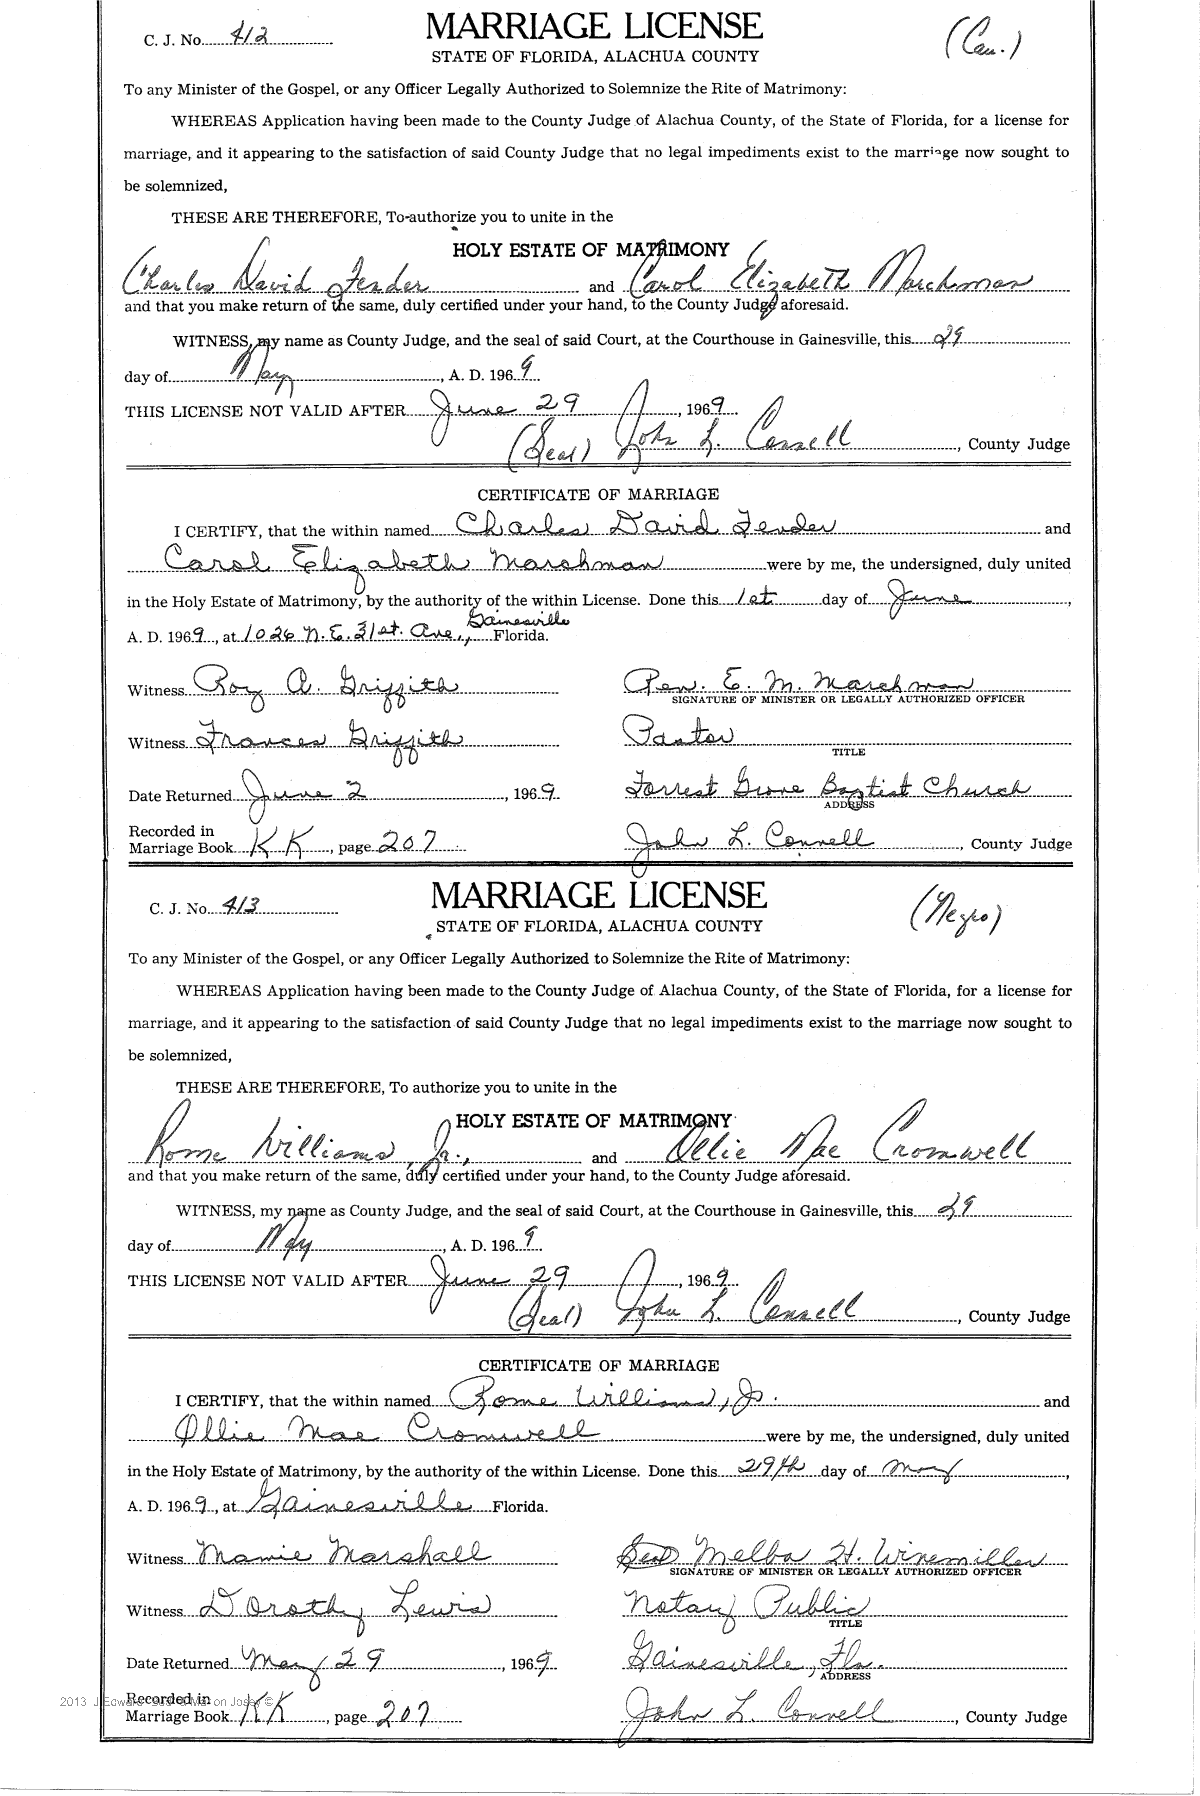 C. J. No. 412
MARRIAGE LICENSE
(Cau.)
STATE OF FLORIDA, ALACHUA COUNTY
To any Minister of the Gospel, or any Officer Legally Authorized to Solemnize the Rite of Matrimony:
WHEREAS Application having been made to the County Judge of Alachua County, of the State of Florida, for a license for
marriage, and it appearing to the satisfaction of said County Judge that no legal impediments exist to the marriage now sought to
be solemnized,
THESE ARE THEREFORE, To authorize you to unite in the
HOLY ESTATE OF MATRIMONY
Charles David Fender and Carol Elizabeth Marchman
and that you make return of the same, duly certified under your hand, to the County Judge aforesaid.
WITNESS, my name as County Judge, and the seal of said Court, at the Courthouse in Gainesville, this 29
day of May, A. D. 1969
THIS LICENSE NOT VALID AFTER June 29, 1969
(Seal) John L. Connell, County Judge
CERTIFICATE OF MARRIAGE
I CERTIFY, that the within named Charles David Fender and
Carol Elizabeth Marchman were by me, the undersigned, duly united
in the Holy Estate of Matrimony, by the authority of the within License. Done this 1st day of June,
A. D. 1969, at 1026 N. E. 31st. Ave., Gainesville Florida.
Witness Roy A. Griffith Rev. E. M. Marchman
SIGNATURE OF MINISTER OR LEGALLY AUTHORIZED OFFICER
Witness Frances Griffith Pastor
TITLE
Date Returned June 2, 1969. Forrest Grove Baptist Church
ADDRESS
Recorded in
Marriage Book KK, page 207 John L. Connell, County Judge
C. J. No. 413
MARRIAGE LICENSE
(Negro)
STATE OF FLORIDA, ALACHUA COUNTY
To any Minister of the Gospel, or any Officer Legally Authorized to Solemnize the Rite of Matrimony:
WHEREAS Application having been made to the County Judge of Alachua County, of the State of Florida, for a license for
marriage, and it appearing to the satisfaction of said County Judge that no legal impediments exist to the marriage now sought to
be solemnized,
THESE ARE THEREFORE, To authorize you to unite in the
HOLY ESTATE OF MATRIMONY
Rome Williams, Jr., and Ollie Mae Cromwell
and that you make return of the same, duly certified under your hand, to the County Judge aforesaid.
WITNESS, my name as County Judge, and the seal of said Court, at the Courthouse in Gainesville, this 29
day of May, A. D. 1969.
THIS LICENSE NOT VALID AFTER June 29, 1969
(Seal) John L. Connell, County Judge
CERTIFICATE OF MARRIAGE
I CERTIFY, that the within named Rome Williams, Jr. and
Ollie Mae Cromwell were by me, the undersigned, duly united
in the Holy Estate of Matrimony, by the authority of the within License. Done this 29th day of May,
A. D. 1969, at Gainesville Florida.
Witness Mamie Marshall Seal Melba H. Winemiller
SIGNATURE OF MINISTER OR LEGALLY AUTHORIZED OFFICER
Witness Dorothy Lewis Notary Public
TITLE
Date Returned May 29, 1969 Gainesville, Fla.
ADDRESS
Recorded in
Marriage Book KK, page 207 John L. Connell, County Judge